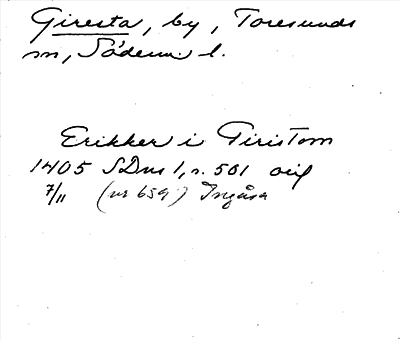 Giresta, by, Toresunds
sn, Söderm l.
Erikker i Giristom
1405 SDns 1, s. 501 orig
7/11 (nr 659) Ingåsa